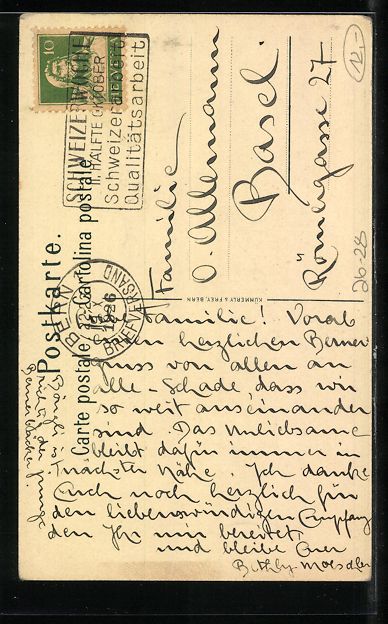 12,-
10
SCHWEIZERWOCHE
II. HÄLFTE OKTOBER
Schweizerarbeit
Qualitätsarbeit
Postkarte.
Carte postale. Cartolina postale
BERN
1926
BRIEFVERSAND
Familie
O. Allemann
Basel.
Römergasse 27
26-28
KÜMMERLY & FREY, BERN
Familie! Vorab
den herzlichen Berner
gruss von allen an
alle - Schade, dass wir
so weit auseinander
sind. Das
bleibt dafür immer in
nächster Nähe. Ich danke
Euch noch herzlich für
den liebenswürdigen Empfang
den Ihr mir bereitet
und bleibe Euer